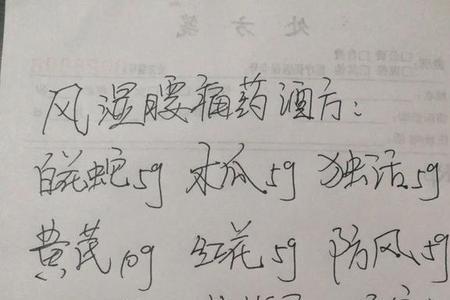 处方笺
风湿腰痛药酒方：
白花蛇5g 木瓜5g 独活5g
黄芪10g 红花5g 防风5g